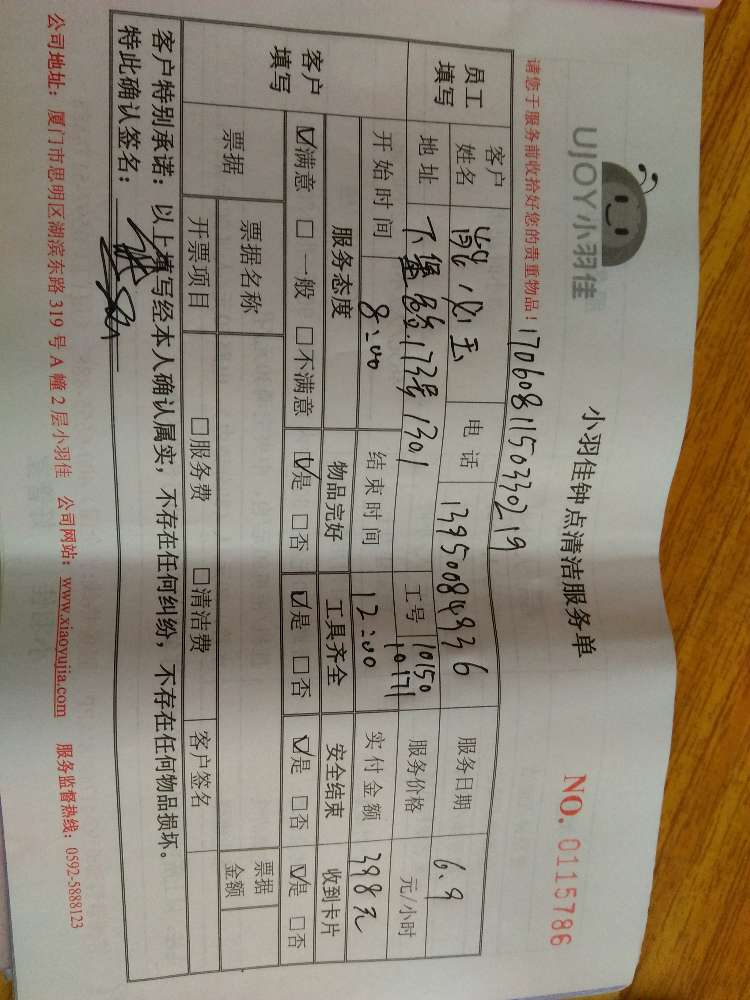 UJOY小羽佳
小羽佳钟点清洁服务单
NO. 0115786
请您于服务前收拾好您的贵重物品！
1706081150330219
员工填写
客户姓名
玉
电话
13950084936
服务日期
6.9
地址
下堡 173号1301
工号
10150
10171
服务价格
元/小时
开始时间
8:00
结束时间
12:00
实付金额
398元
客户填写
服务态度
物品完好
工具齐全
安全结束
收到卡片
☑满意 □一般 □不满意
☑是 □否
☑是 □否
☑是 □否
☑是 □否
票据
票据名称
票据金额
开票项目
□服务费 □清洁费
客户签名
客户特别承诺：以上填写经本人确认属实，不存在任何纠纷，不存在任何物品损坏。
特此确认签名：
公司地址：厦门市思明区湖滨东路 319 号 A 幢 2 层小羽佳 公司网站：www.xiaoyujia.com 服务监督热线：0592-5888123